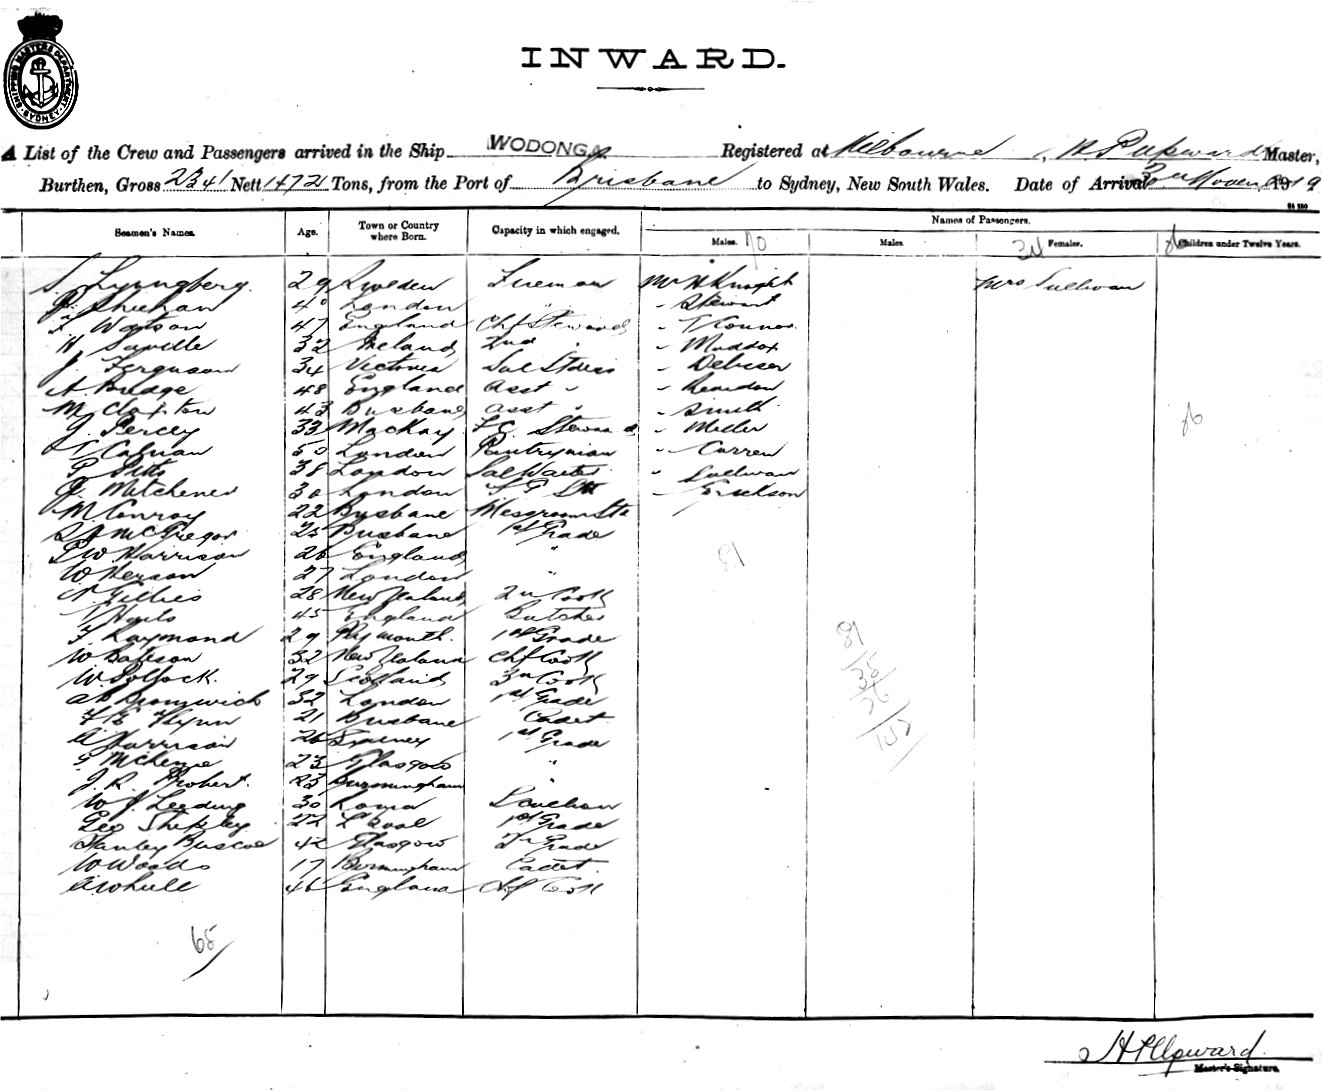 SHIPPING MASTERS DEPARTMENT SYDNEY
INWARD.
A List of the Crew and Passengers arrived in the Ship WODONGA Registered at Melbourne, Upward Master,
Burthen, Gross 2341 Nett 1472 Tons, from the Port of Brisbane to Sydney, New South Wales. Date of Arrival 3 Novem 1919
Seamen's Names. Age. Town or Country where Born. Capacity in which engaged. Names of Passengers.
Males. Males. Females. Children under Twelve Years.
S. Lyungberg 29 Sweden Fireman Mr H Knight Mrs Sullivan
P. Sheehan 40 London " " Stewart
F Watson 47 England Chf Steward " T Connor
H Saville 32 Ireland 2nd " " Maddox
J. Ferguson 34 Victoria Sal Stdess "
A Burdge 48 England Asst " " Reardon
M Claxton 43 Brisbane Asst " " Smith
J. Percey 33 Mackay Steward " Miller
T Calnan 50 London Pantryman " Curren
P Pitts 38 London Sal Waiter " Sullivan
J. Mitchener 30 London " Erickson
M Conroy 22 Brisbane Messroom Std
McGregor 25 Brisbane 1st Grade
W Harrison 26 England "
W Herson 27 London "
N Gillies 28 New Zealand 2n Cook
T Hails 45 England Butcher
F. Raymond 29 Plymouth. 1st Grade
W Bateson 32 New Zealand Chf Cook
W. Pollock. 29 Scotland 3n Cook
Bromwich 32 London 1st Grade
T. E Flynn 21 Brisbane Cadet
A Harrison 26 Sydney 1st Grade
McKenzie 23 Glasgow "
J. R. Probert. 23 Birmingham "
W J. Leeding 30 Roma
Geo Shepley 22 L'pool 1st Grade
Stanley Buscoe 42 Glasgow 2n Grade
W Woods 17 Birmingham Cadet.
46 England Cook
65
H P Upward.
Master's Signature.